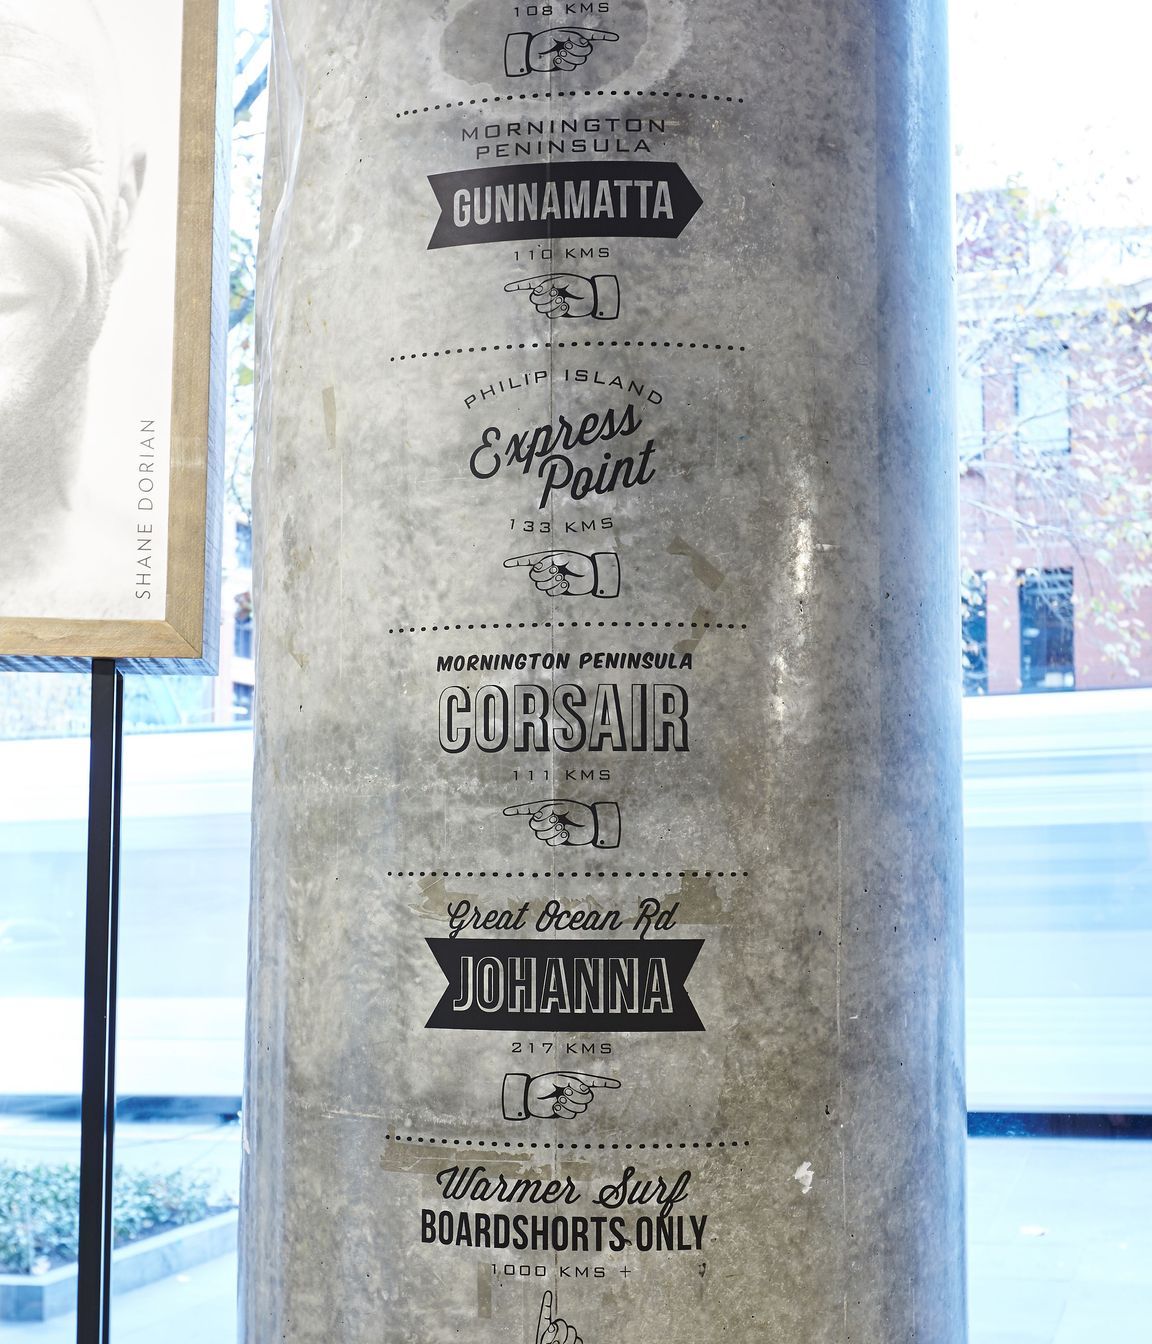 108 KMS
MORNINGTON
PENINSULA
GUNNAMATTA
110 KMS
PHILIP ISLAND
Express
Point
133 KMS
MORNINGTON PENINSULA
CORSAIR
111 KMS
Great Ocean Rd
JOHANNA
217 KMS
Warmer Surf
BOARDSHORTS ONLY
1000 KMS +
SHANE DORIAN